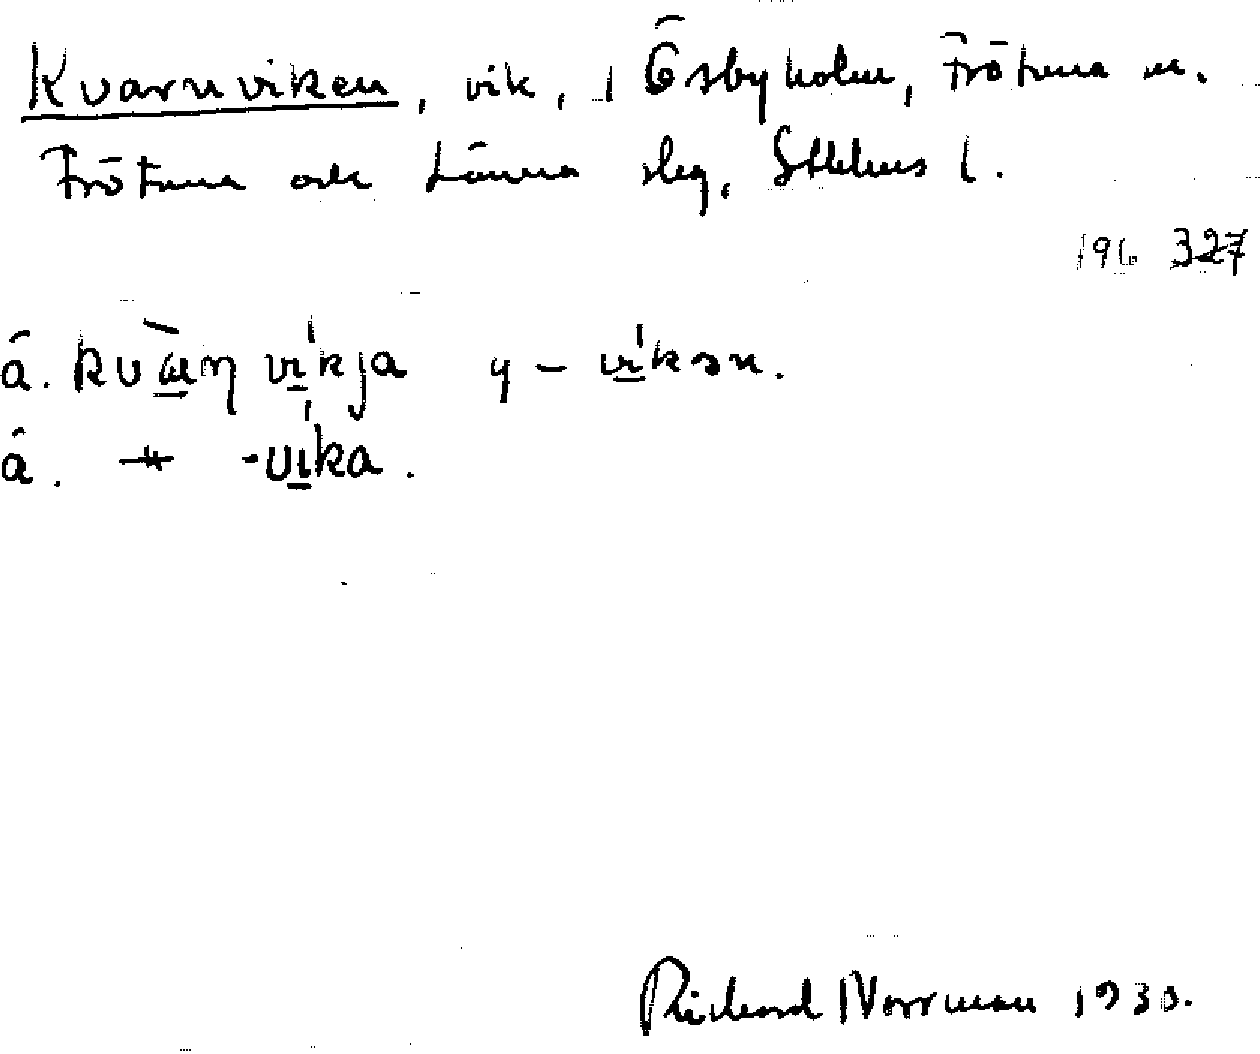 Kvarnviken, vik, i Ösbyholm, Frötuna m.
Frötuna och Länna slg, Sthlms l.
196 327
å. kvɑ̀ɳ víkja y – víkən.
å. –"– -víka.
Richard Norrman 1930.